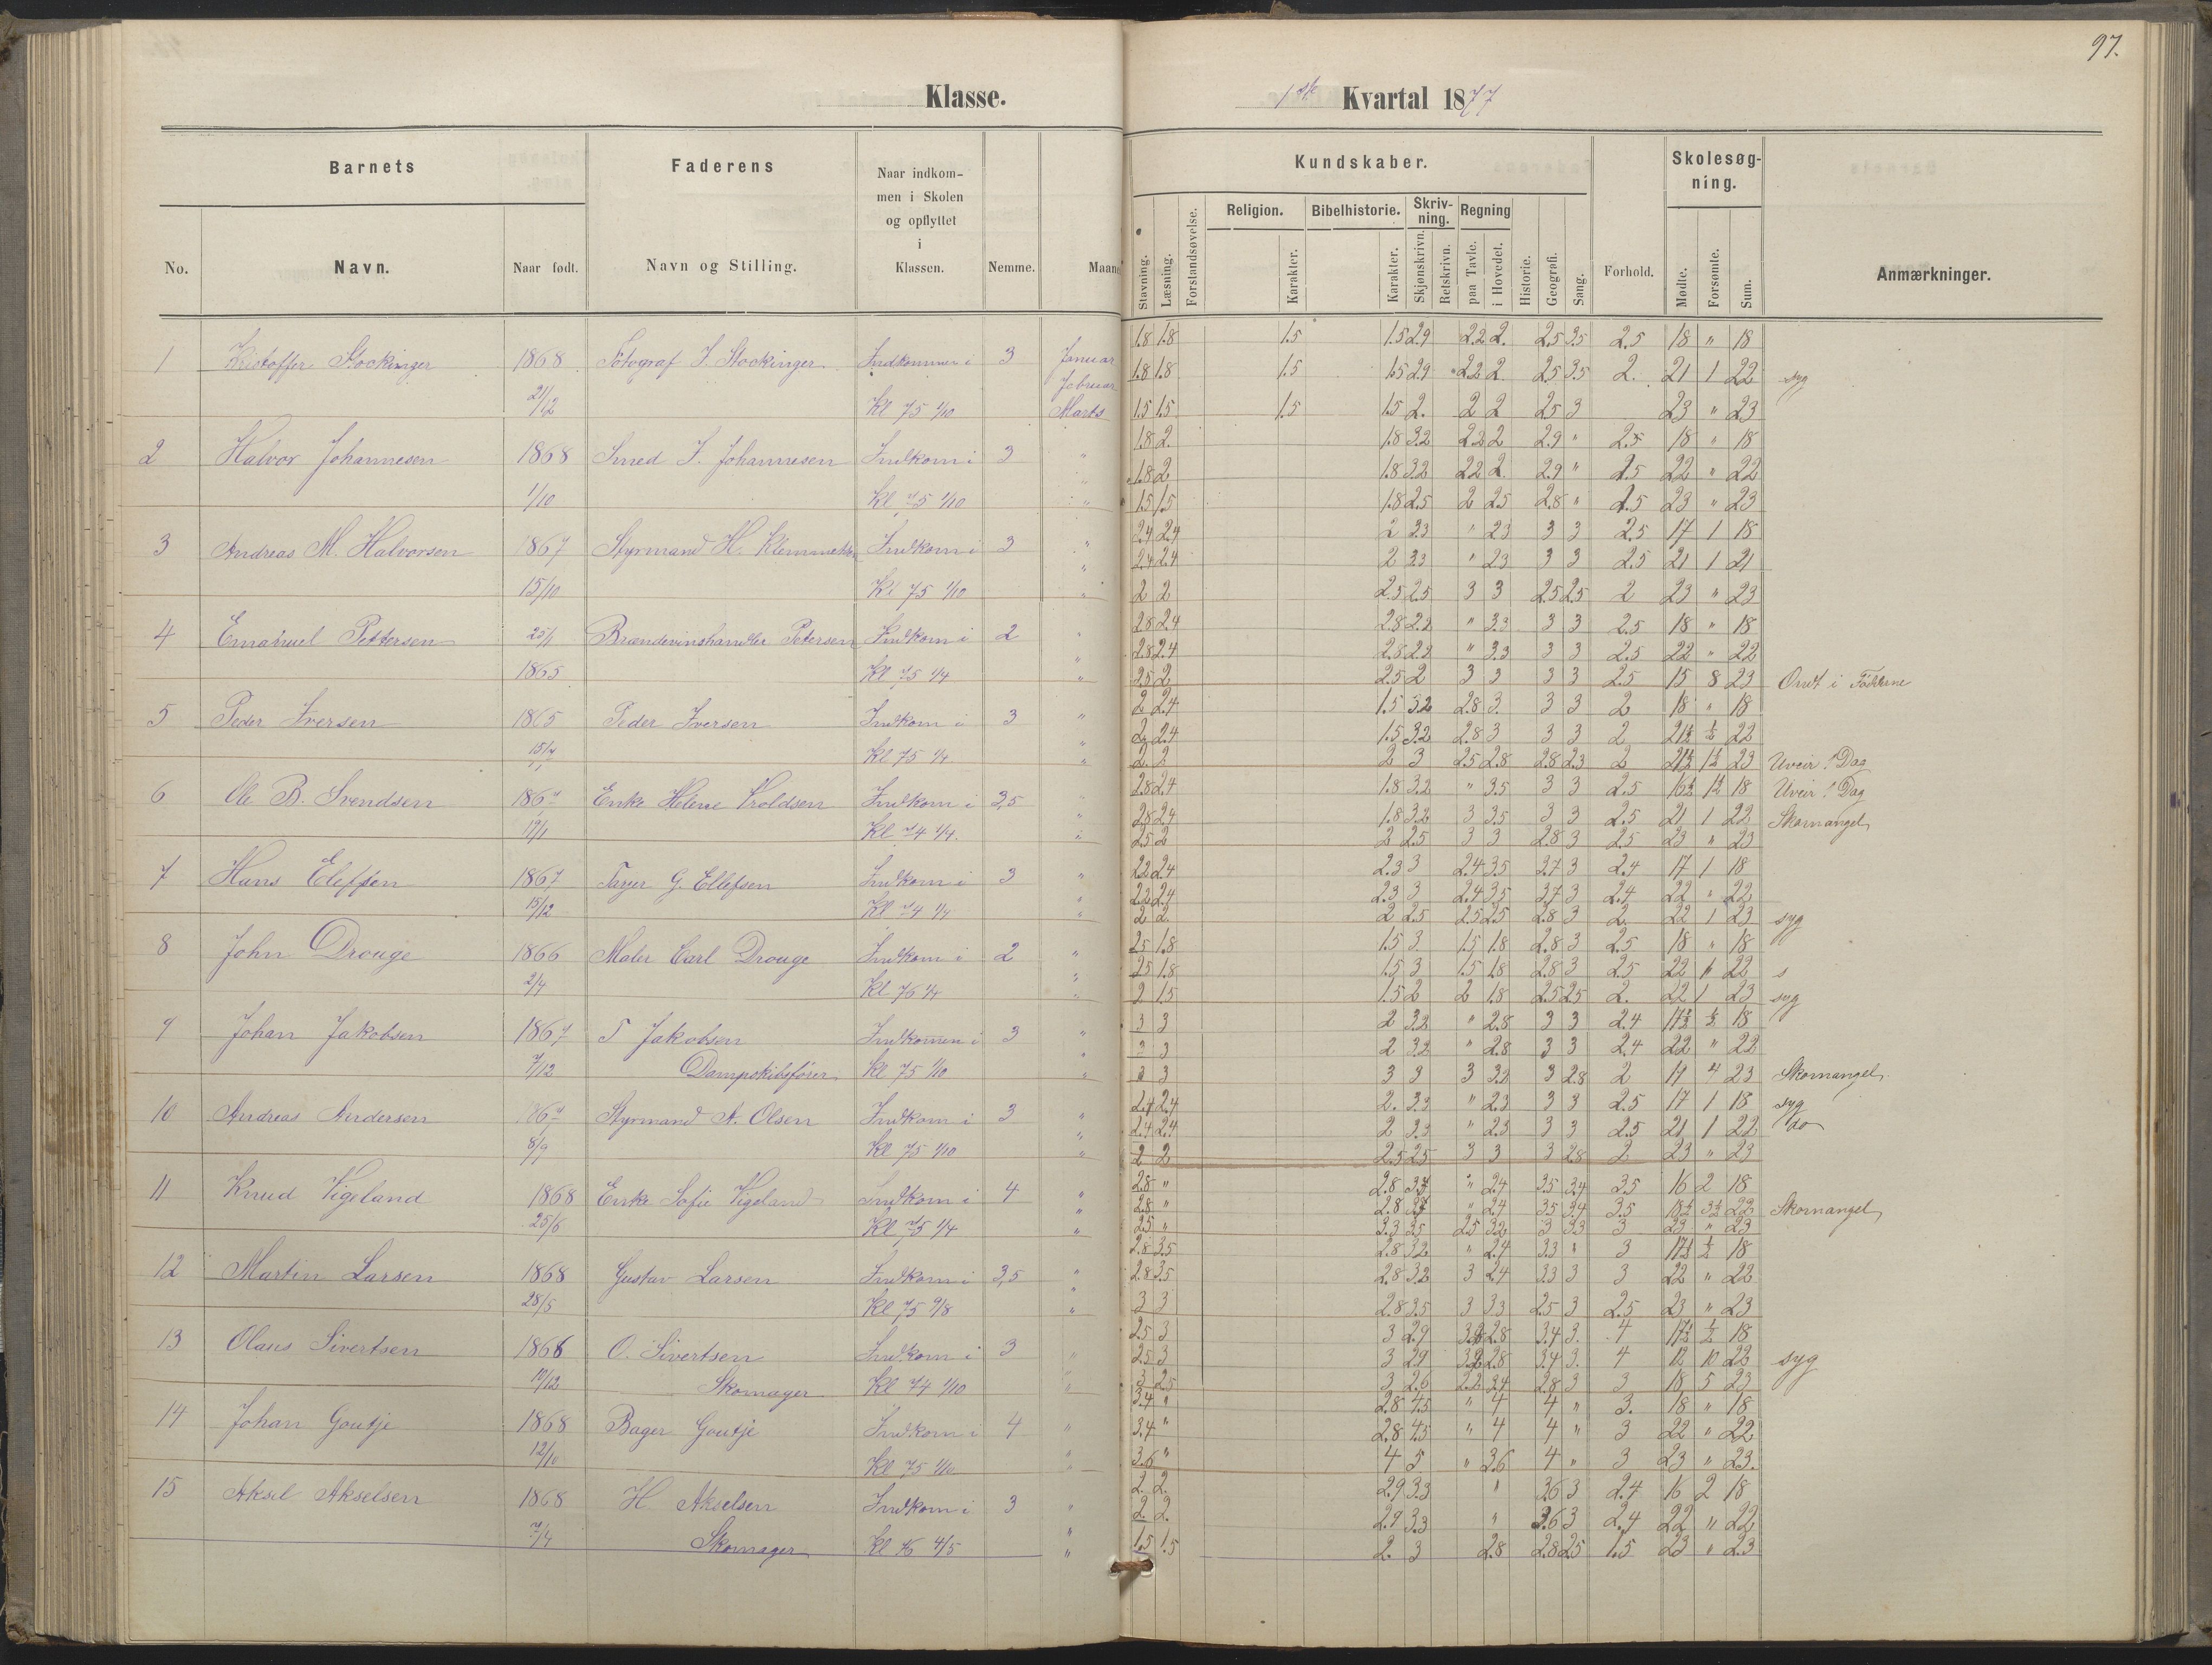 97.
Klasse.
1ste Kvartal 1877
Barnets
Faderens
Naar indkom-
men i Skolen
og opflyttet
i
Klassen.
Nemme.
No.
Navn.
Naar født.
Navn og Stilling.
Kundskaber.
Stavning.
Læsning.
Forstandsøvelse.
Religion.
Karakter.
Bibelhistorie.
Karakter.
Skriv-
ning.
Skjønskrivn.
Retskrivn.
Regning
paa Tavle.
i Hovedet.
Historie.
Geografi.
Sang.
Forhold.
Skolesøg-
ning.
Mødte.
Forsømte.
Sum.
Anmærkninger.
1 Kristoffer Stockinger 1868 Fotograf J. Stockinger Indkommen i 3 Januar
Februar
21/12 Kl 75 1/10 Marts
2 Halvor Johannesen 1868 Smed J. Johannesen Indkom i 3 "
1/10 Kl 75 1/10 "
3 Andreas M. Halvorsen 1867 Styrmand H. Indkom i 3 "
15/10 Kl 75 1/10 "
4 Emanuel Pettersen 25/1 Brændevinshandler Petersen Indkom i 2 "
1865 Kl 75 1/4 "
5 Peder Iversen 1865 Peder Iversen Indkom i 3 "
Kl 75 1/4 "
6 Ole B. Svendsen 1867 Enke Helene Indkom i 3,5 "
19/1 Kl 74 1/4 "
7 Hans Elefsen 1867 G. Ellefsen Indkom i 3 "
15/12 Kl 74 1/4 "
8 John Drouge 1866 Maler Carl Drouge Indkom i 2 "
2/4 Kl 76 1/4 "
9 Johan Jakobsen 1867 T Jakobsen Indkommen i 3 "
7/12 Dampskibsfører Kl 75 1/10 "
10 Andreas Andersen 1867 Styrmand A. Olsen Indkom i 3 "
8/9 Kl 75 1/10 "
11 Knud Vigeland 1868 Enke Sofie Vigeland Indkom i 4 "
25/6 Kl 75 1/4 "
12 Martin Larsen 1868 Gustav Larsen Indkom i 3,5 "
28/5 Kl 75 9/8 "
13 Olaus Sivertsen 1866 O. Sivertsen Indkom i 3 "
Skomager Kl 74 1/10 "
14 Johan Goutje 1868 Bager Goutje Indkom i 4 "
12/10 Kl 75 1/10 "
15 Aksel Akselsen 1868 H. Akselsen Indkom i 3 "
7/4 Skomager Kl 76 4/5 "
1.8 1.8 1.5 1.5 2.9 2.2 2. 2.5 3.5 2.5 18 " 18
1.8 1.8 1.5 1.5 2.9 2.2 2 2.5 3.5 2. 21 1 22 syg
1.5 1.5 1.5 1.5 2. 2 2 2.5 3 23 " 23
1.8 2. 1.8 3.2 2.2 2 2.9 " 2.5 18 " 18
1.8 2 1.8 3.2 2.2 2. 2.9 " 2.5 22 " 22
1.5 1.5 1.8 2.5 2 2.5 2.8 " 2.5 23 " 23
2.4 2.4 2 3.3 " 2.3 3 3 2.5 17 1 18
2.4 2.4 2 3.3 " 2.3 3 3 2.5 21 1 21
2 2 2.5 2.5 3 3 2.5 2.5 2 23 " 23
2.8 2.4 2.8 2.2 " 3.3 3 3 2.5 18 " 18
2.8 2.4 2.8 2.2 " 3.3 3 3 2.5 22 " 22
2.5 2 2.5 2 3 3 3 3 2.5 15 8 23 Ondt i
2 2.4 1.5 3.2 2.8 3 3 3 2 18 " 18
2 2.4 1.5 3.2 2.8 3 3 3 2 21½ ½ 22
2. 2 2 3 2.5 2.8 2.8 2.3 2 21½ 1½ 23 Uveir 1 Dag
2.8 2.4 1.8 3.2 " 3.5 3 3 2.5 16½ 1½ 18 Uveir 1 Dag
2.8 2.4 1.8 3.2 3 3.5 3 3 2.5 21 1 22 Skomangel
2.5 2 2 2.5 3 3 2.8 3 2.5 23 " 23
2.2 2.4 2.3 3 2.4 3.5 3.7 3 2.4 17 1 18
2.2 2.4 2.3 3 2.4 3.5 3.7 3 2.4 22 " 22
2 2. 2 2.5 2.5 2.5 2.8 3 2. 22 1 23 syg
2.5 1.8 1.5 3 1.5 1.8 2.8 3 2.5 18 " 18
2.5 1.8 1.5 3 1.5 1.8 2.8 3 2.5 22 " 22 s
2 1.5 1.5 2 2 1.8 2.5 2.5 2. 22 1 23 syg
3 3 2 3.2 " 2.8 3 3 2.4 17½ ½ 18
3 3 2 3.2 " 2.8 3 3 2.4 22 " 22
3 3 3 3 3 3.2 3 2.8 2 4 23 Skomangel
2.4 2.4 2. 3.3 " 2.3 3 3 2.5 17 1 18 syg
2.4 2.4 2 3.3 " 2.3 3 3 2.5 21 1 22 do
2 2 2.5 2.5 3 3 3 2.8 2 23 " 23
2.8 " 2.8 " 2.4 3.5 3.4 3.5 16 2 18
2.8 " 2.8 " 2.4 3.5 3.4 3.5 18½ 3½ 22 Skomangel
2.5 " 3.3 3.5 2.5 3.2 3 3.3 3 23 " 23
2.8 3.5 2.8 3.2 " 2.4 3.3 " 3 17½ ½ 18
2.8 3.5 2.8 3.2 3 2.4 3.3 3 3 22 " 22
3 3 2.8 3.5 3 3.3 2.5 3 2.5 23 " 23
2.5 3 3 2.9 2.8 3.4 3. 4 17½ ½ 18
2.5 3 3 2.9 2.8 3.4 3. 4 12 10 22 syg
3 2.5 3 2.6 2.2 2.4 2.8 3 3 18 5 23
3.4 " 2.8 4.5 " 4 4 " 3. 18 " 18
3.4 " 2.8 4.5 " 4 4 " 3 22 " 22
3.6 " 4 5 " 3.6 4 " 3 23 " 23.
2. 2. 2.9 3.3 " 3.6 3 2.4 16 2 18
2. 2. 2.9 3.3 " 3.6 3 2.4 22 " 22
1.5 1.5 2. 3 2.8 2.8 2.5 1.5 23 " 23